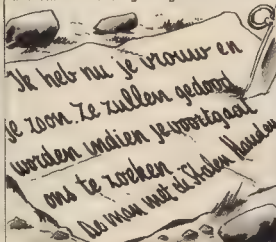 Ik heb nu je vrouw en
je zoon. Ze zullen gedood
worden indien je voortgaat
ons te zoeken
De man met de Stalen Handen